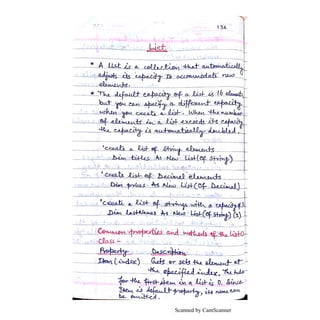 134
List
• A list is a collection that automatically
adjusts its capacity to accommodate new
elements.
• The default capacity of a list is 16 elements
but you can specify a different capacity
when you create a list. When the number
of elements in a list exceeds its capacity
the capacity is automatically doubled.
'create a list of string elements
Dim titles As New List(Of String)
'create list of Decimal elements
Dim prices As New List(Of Decimal)
'create a list of strings with a capacity of 3
Dim lastNames As New List(Of String)(3)
Common properties and methods of the List()
Class -
Property Description
Item(index) Gets or sets the element at
the specified index. The index
for the first item in a list is 0. Since
Item is default property, its name can
be omitted.
Scanned by CamScanner